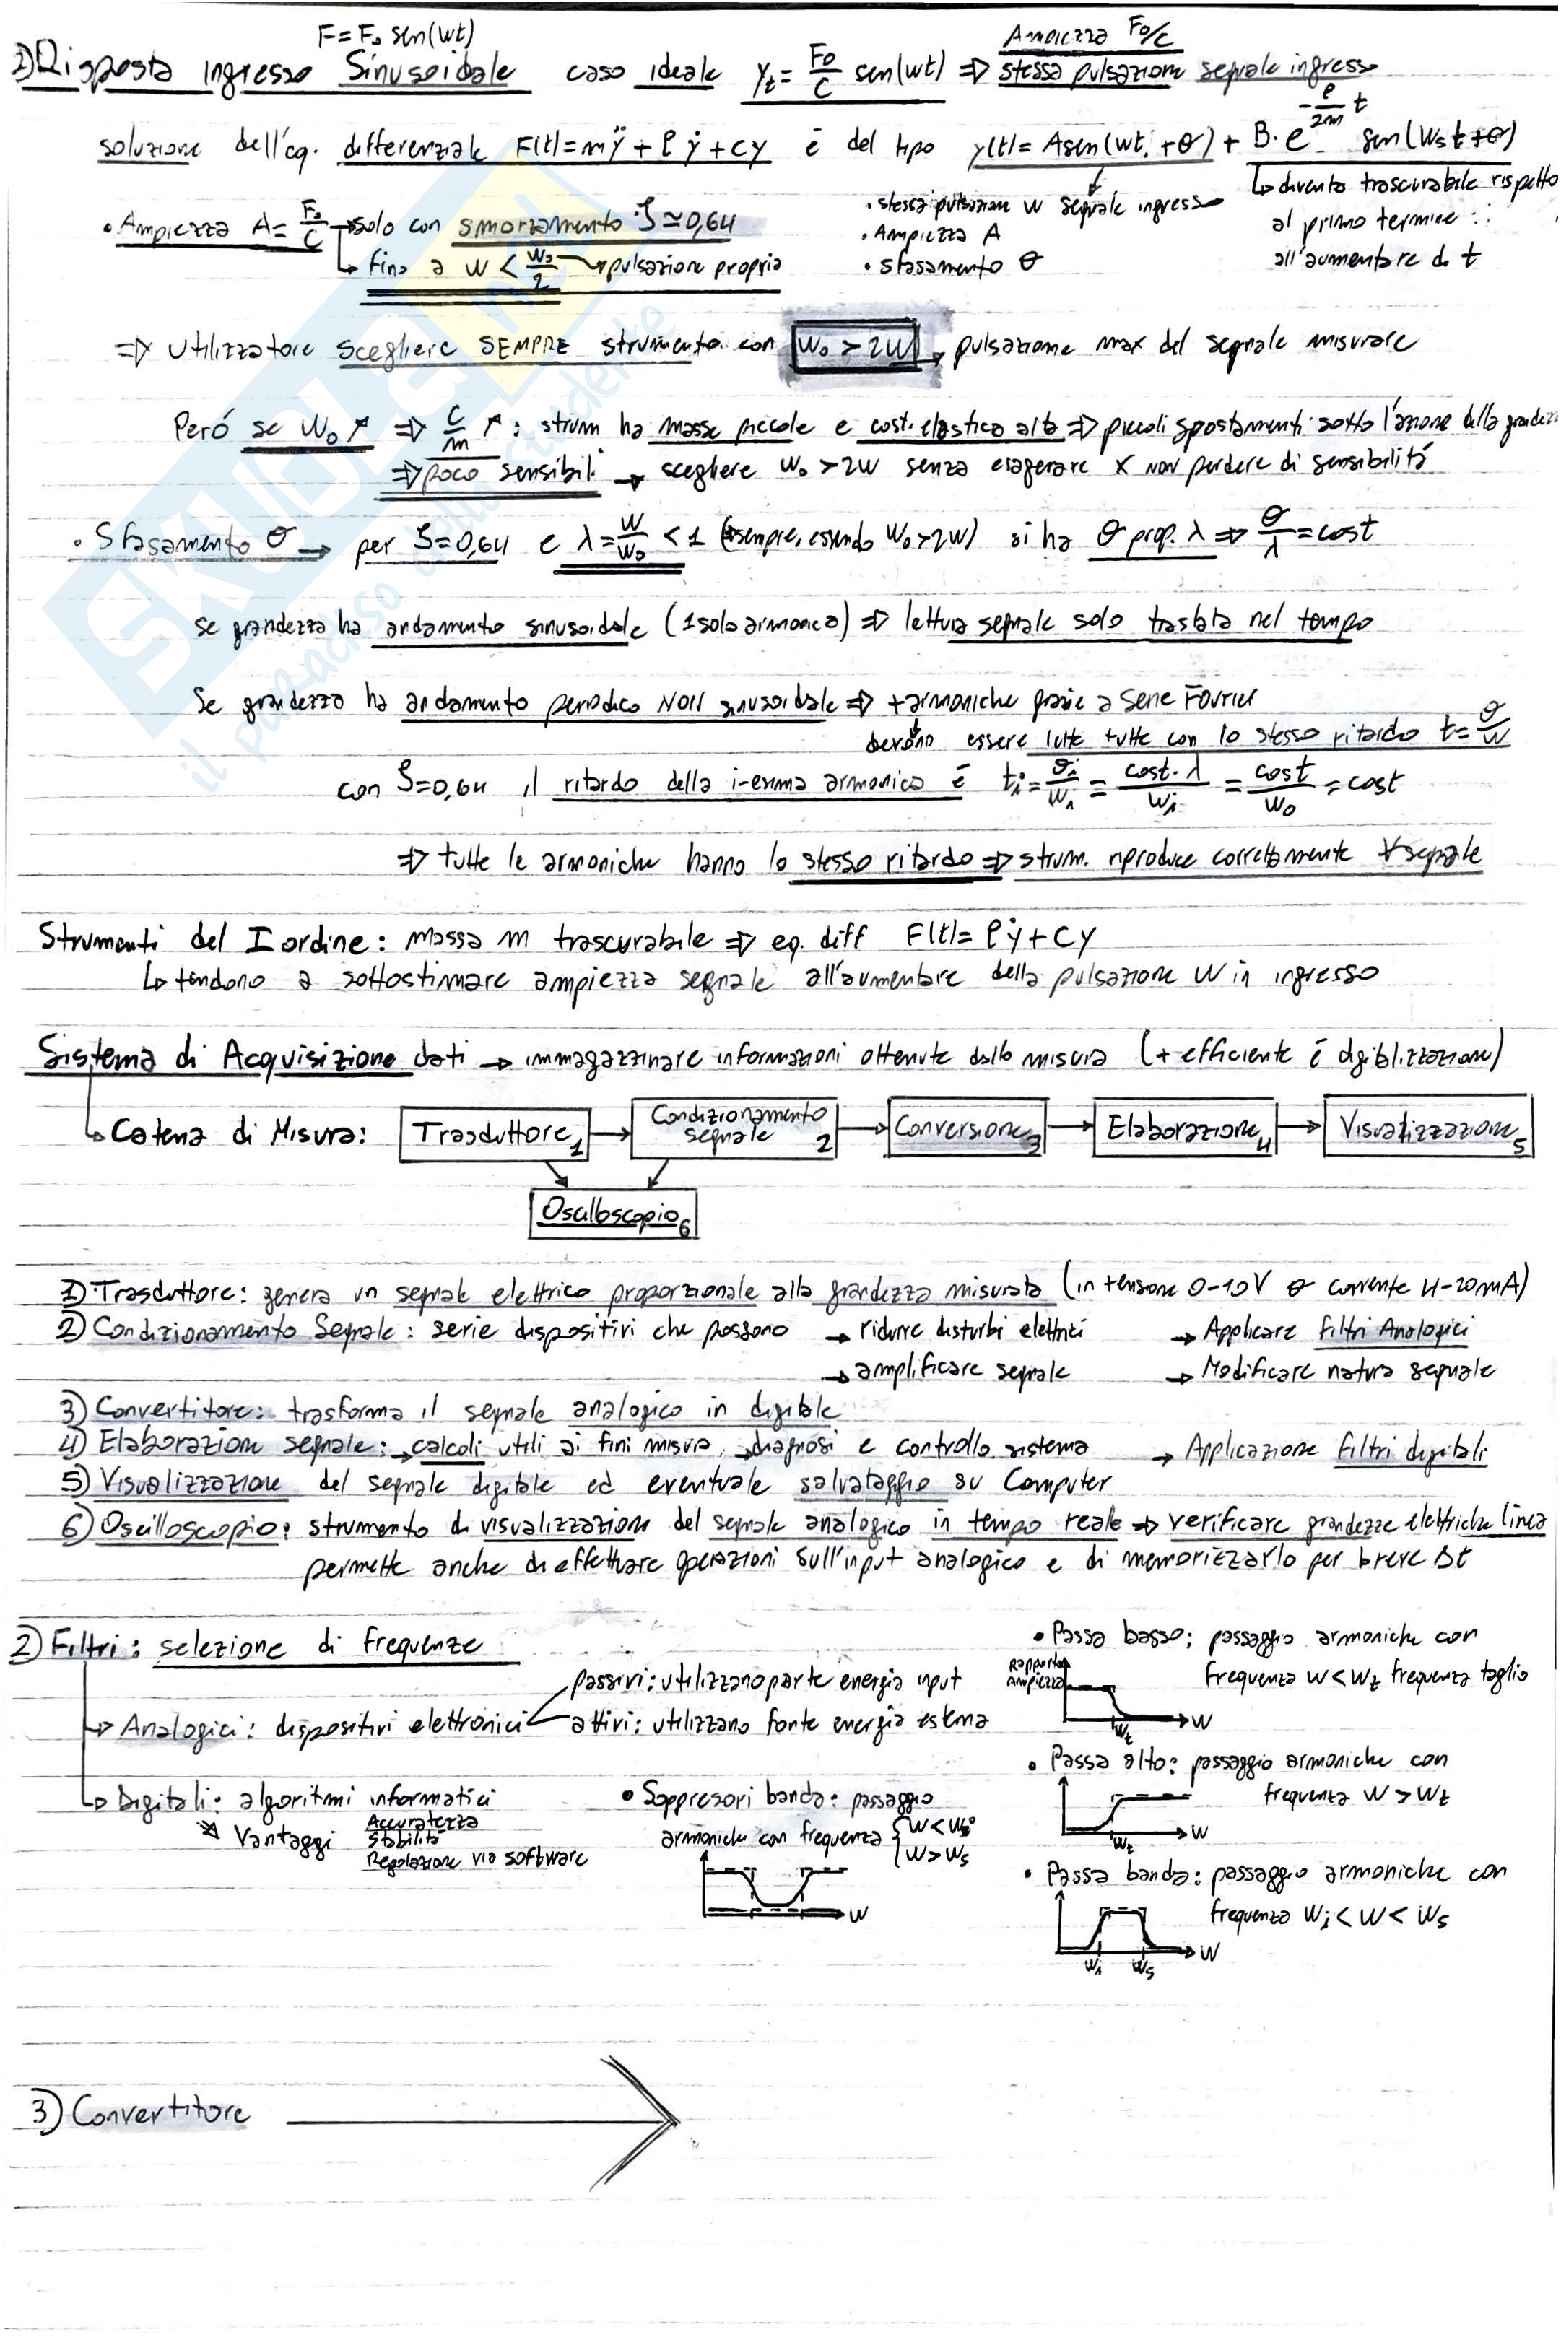 F = F₀ sen(wt)
2) Risposta Ingresso Sinusoidale caso ideale yₜ = F₀/C sen(wt) ⇒ Ampiezza F₀/C stessa pulsazione segnale ingresso
soluzione dell'eq. differenziale F(t) = mÿ + ρẏ + Cy è del tipo y(t) = A sen(wt + θ) + B·e^(-ρ/2m t) sen(wₛt+θ)
• stessa pulsazione w segnale ingresso
• Ampiezza A
• sfasamento θ
↳ diventa trascurabile rispetto
al primo termine
all'aumentare di t
• Ampiezza A = F₀/C → solo con smorzamento ζ ≃ 0,64
↳ fino a w < w₀/2 → pulsazione propria
⇒ Utilizzatore scegliere SEMPRE strumento con w₀ > 2w → pulsazione max del segnale misurare
Peró se w₀ ↗ ⇒ C/m ↗ : strum ha masse piccole e cost. elastica alta ⇒ piccoli spostamenti sotto l'azione della grandezza
⇒ poco sensibili → scegliere w₀ > 2w senza esagerare x non perdere di sensibilitá
• Sfasamento θ → per ζ = 0,64 e λ = w/w₀ < 1 (sempre, essendo w₀ > 2w) si ha θ prop. λ ⇒ θ/λ = cost
se grandezza ha andamento sinusoidale (1 sola armonica) ⇒ lettura segnale solo traslata nel tempo
Se grandezza ha andamento periodico NON sinusoidale ⇒ + armoniche grazie a Serie Fourier
devono essere lette tutte con lo stesso ritardo t = θ/w
con ζ = 0,64 il ritardo della i-esima armonica é tᵢ = θᵢ/wᵢ = cost·λ/wᵢ = cost/w₀ = cost
⇒ tutte le armoniche hanno lo stesso ritardo ⇒ strum. riproduce correttamente ∀ segnale
Strumenti del I ordine: massa m trascurabile ⇒ eq. diff F(t) = ρẏ + Cy
↳ tendono a sottostimare ampiezza segnale all'aumentare della pulsazione w in ingresso
Sistema di Acquisizione dati → immagazzinare informazioni ottenute dalla misura (+ efficiente é digiblizzazione)
↳ Catena di Misura: Trasduttore 1 → Condizionamento segnale 2 → Conversione 3 → Elaborazione 4 → Visualizzazione 5
Oscilloscopio 6
1) Trasduttore: genera un segnale elettrico proporzionale alla grandezza misurata (in tensione 0-10V o corrente 4-20mA)
2) Condizionamento Segnale: serie dispositivi che possono → ridurre disturbi elettrici → Applicare filtri Analogici
→ amplificare segnale → Modificare natura segnale
3) Convertitore: trasforma il segnale analogico in digitale
4) Elaborazione segnale: → calcoli utili ai fini misura → diagnosi e controllo sistema → Applicazione filtri digitali
5) Visualizzazione del segnale digitale ed eventuale salvataggio su Computer
6) Oscilloscopio: strumento di visualizzazione del segnale analogico in tempo reale ⇒ verificare grandezze elettriche linea
permette anche di effettuare operazioni sull'input analogico e di memorizzarlo per breve Δt
2) Filtri: selezione di Frequenze
↳ Analogici: dispositivi elettronici
passivi: utilizzano parte energia input
attivi: utilizzano fonte energia esterna
↳ Digitali: algoritmi informatici
Vantaggi
Accuratezza
Stabilitá
Regolazione via software
• Soppressori banda: passaggio
armoniche con frequenza { w < wᵢ
w > wₛ
w
• Passa basso: passaggio armoniche con
Frequenza w < wₜ frequenza taglio
Rapporto
Ampiezza
wₜ
w
• Passa alto: passaggio armoniche con
frequenza w > wₜ
wₜ
w
• Passa banda: passaggio armoniche con
frequenza wᵢ < w < wₛ
wᵢ wₛ w
3) Convertitore
SKUOLA.net
il paradiso dello studente